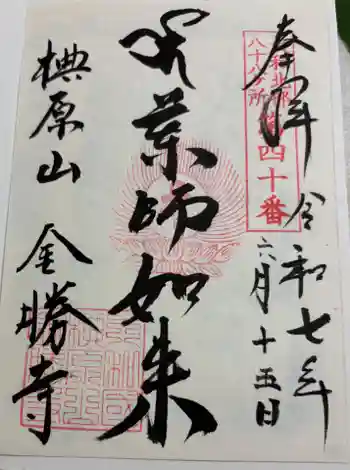 奉拝 令和七年
六月十五日
大和北部
八十八ヶ所
第四十番
薬師如来
椣原山 金勝寺